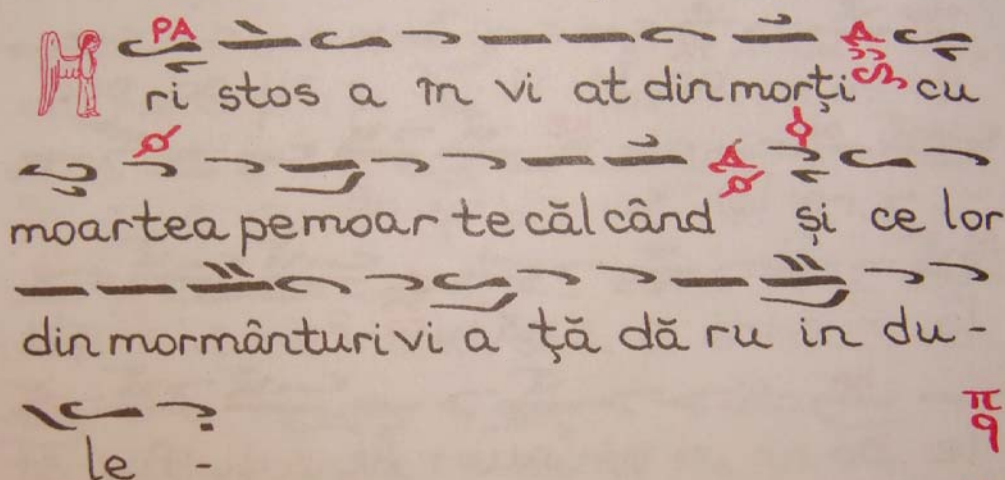 PA
Hri stos a în vi at din morți cu
moartea pe moar te călcând și ce lor
din mormânturi vi a ță dă ru in du -
le -
π
q